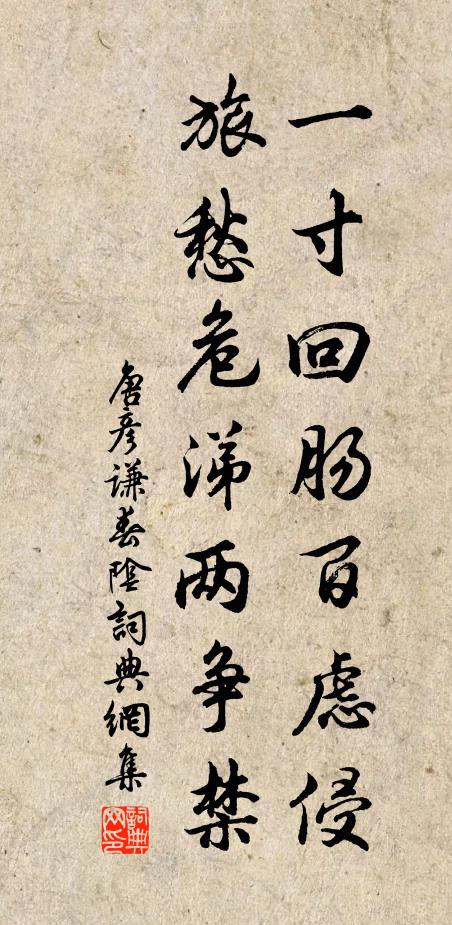 一寸回肠百虑侵
旅愁危涕两争禁
唐彦谦春陰詞典網集
詞典网印